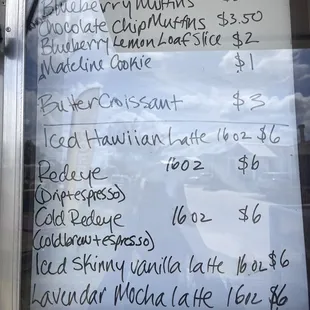 Blueberry Muffins
Chocolate Chip Muffins $3.50
Blueberry Lemon Loaf Slice $2
Madeline Cookie $1
Buter Croissant $3
Iced Hawiian Latte 16oz $6
Redeye 16oz $6
(Drip+espresso)
Cold Redeye 16oz $6
(coldbrew+espresso)
Iced Skinny vanilla latte 16oz $6
Lavendar Mocha latte 16oz $6